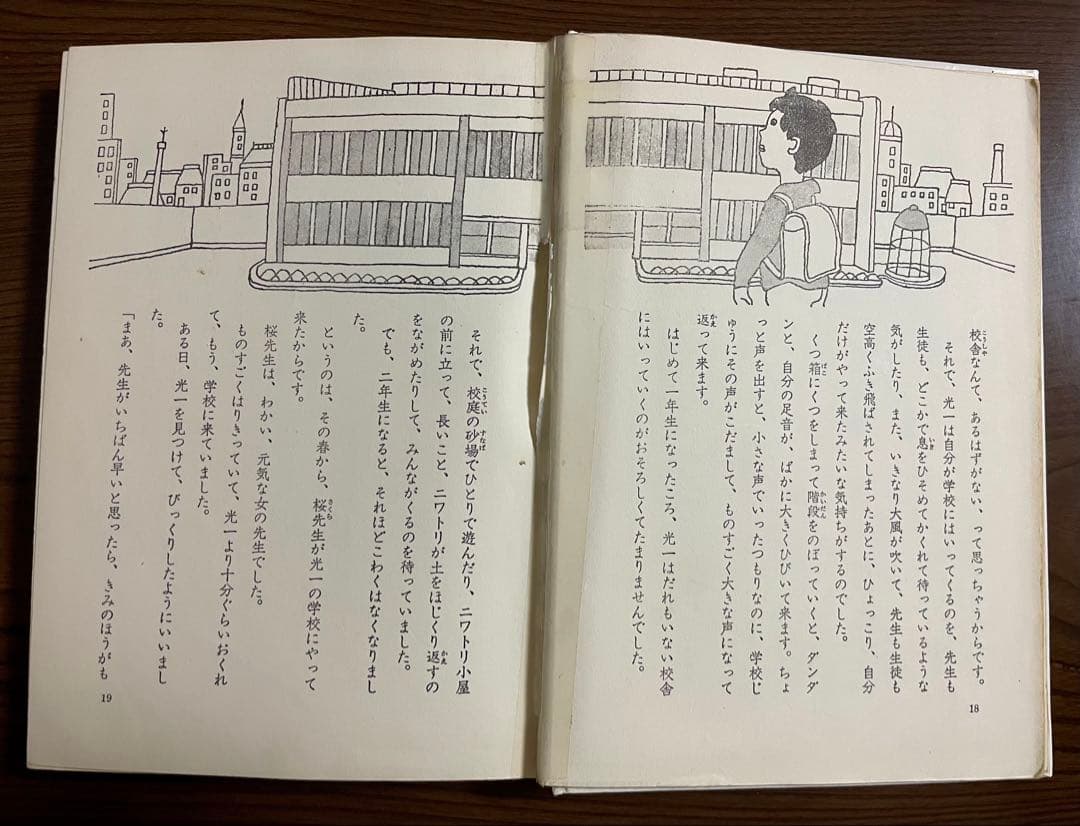 校舎なんて、あるはずがない、って思っちゃうからです。
それで、光一は自分が学校にはいってくるのを、先生も
生徒も、どこかで息をひそめてかくれて待っているような
気がしたり、また、いきなり大風が吹いて、先生も生徒も
空高くふき飛ばされてしまったあとに、ひょっこり、自分
だけがやって来たみたいな気持ちがするのでした。
くつ箱にくつをしまって階段をのぼっていくと、ダンダ
ンと、自分の足音が、ばかに大きくひびいて来ます。ちょ
っと声を出すと、小さな声でいったつもりなのに、学校じ
ゅうにその声がこだまして、ものすごく大きな声になって
返って来ます。
はじめて一年生になったころ、光一はだれもいない校舎
にはいっていくのがおそろしくてたまりませんでした。
18
それで、校庭の砂場でひとりで遊んだり、ニワトリ小屋
の前に立って、長いこと、ニワトリが土をほじくり返すの
をながめたりして、みんながくるのを待っていました。
でも、二年生になると、それほどこわくはなくなりまし
た。
というのは、その春から、桜先生が光一の学校にやって
来たからです。
桜先生は、わかい、元気な女の先生でした。
ものすごくはりきっていて、光一より十分ぐらいおくれ
て、もう、学校に来ていました。
ある日、光一を見つけて、びっくりしたようにいいまし
た。
「まあ、先生がいちばん早いと思ったら、きみのほうがも
19